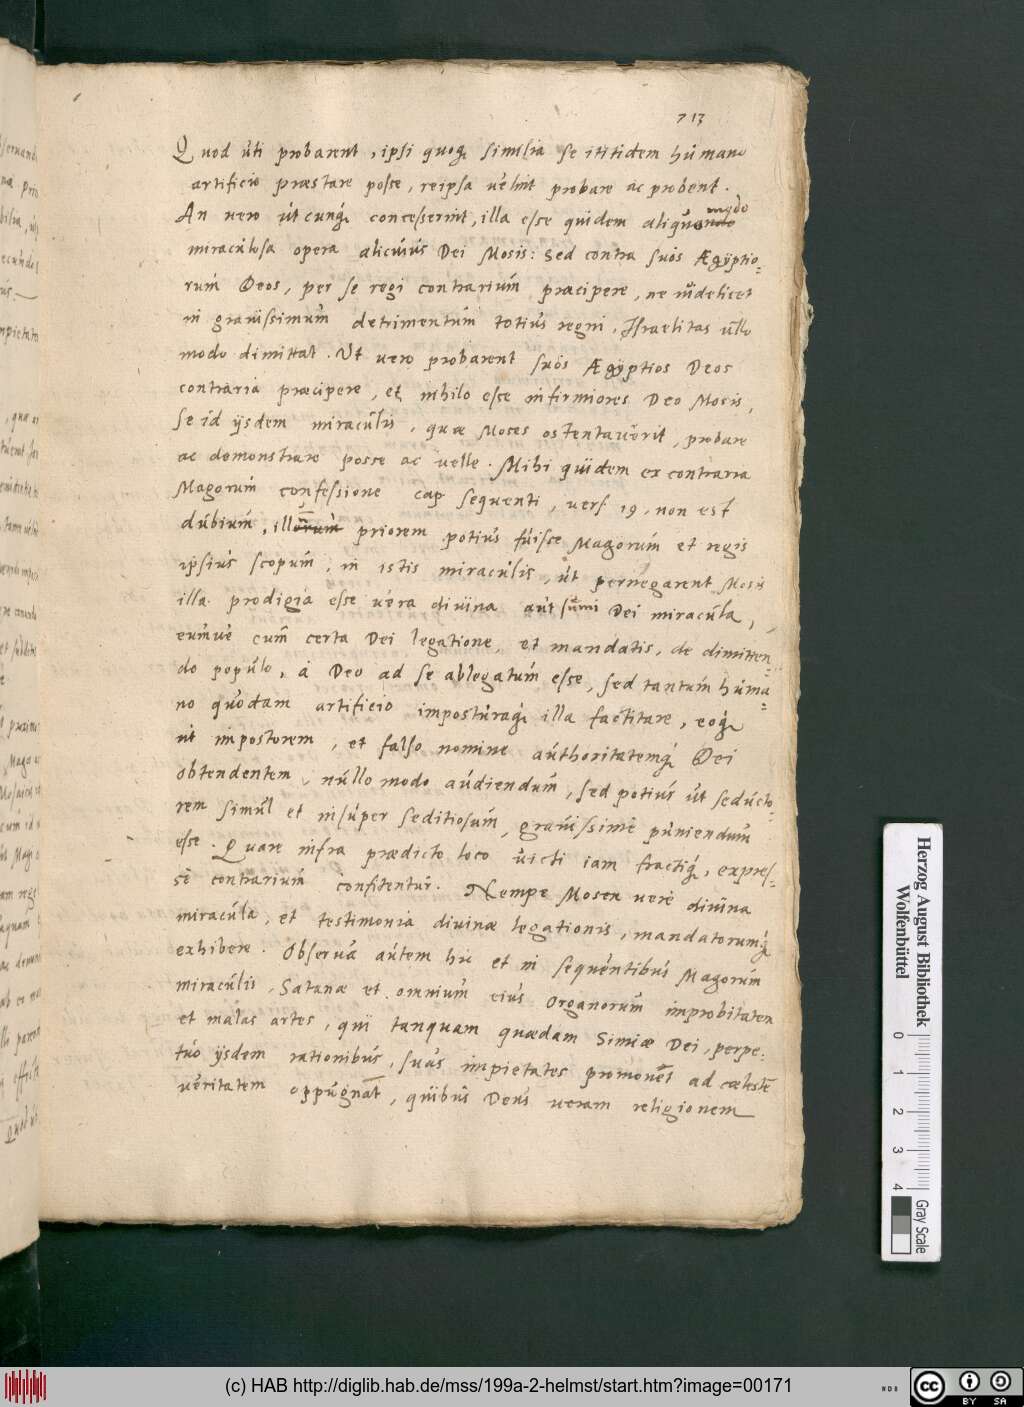 713
Quod uti probarent, ipsi quoq; similia se ititidem humano
artificio præstare posse, reipsa velint probare ac probent.
An vero utcunq; concesserint, illa esse quidem aliquo modo
miraculosa opera alicuius Dei Mosis: Sed contra suos Ægyptio=
rum Deos, per se regi contrarium præcipere, ne videlicet
in gravissimum detrimentum totius regni, Israelitas ullo
modo dimittat. Ut vero probarent suos Ægyptios Deos
contraria præcipere, et nihilo esse infirmiores Deo Mosis,
se id ijsdem miraculis, quæ Moses ostentaverit, probare
ac demonstrare posse ac velle. Mihi quidem ex contraria
Magorum confessione cap sequenti, vers 19, non est
dubium, priorem potius fuisse Magorum et regis
ipsius scopum, in istis miraculis, ut pernegarent Mosis
illa prodigia esse vera divina aut sum̄i Dei miracula,
eumve cum certa Dei legatione, et mandatis, de dimitten=
do populo, à Deo ad se ablegatum esse, sed tantum huma=
no quodam artificio imposturaq; illa factitare, eoq;
ut impostorem, et falso nomine authoritatemq; Dei
obtendentem, nullo modo audiendum, sed potius ut seducto=
rem simul et insuper seditiosum, gravissimè puniendum
esse. Quare infra prædicto loco victi iam fractiq;, expres=
sè contrarium confitentur. Nempe Mosen verè divina
miracula, et testimonia divinæ legationis, mandatorumq;
exhibere. Observa autem hic et in sequentibus Magorum
miraculis, Satanæ et omnium eius Organorum improbitatem
et malas artes, qui tanquam quædam Simiæ Dei, perpe=
tuo ijsdem rationibus, suas impietates ad cælestē
veritatem oppugnāt, quibus Deus veram religionem
Herzog August Bibliothek
Wolfenbüttel
0 1 2 3 4
Gray Scale
(c) HAB http://diglib.hab.de/mss/199a-2-helmst/start.htm?image=00171
cc BY SA